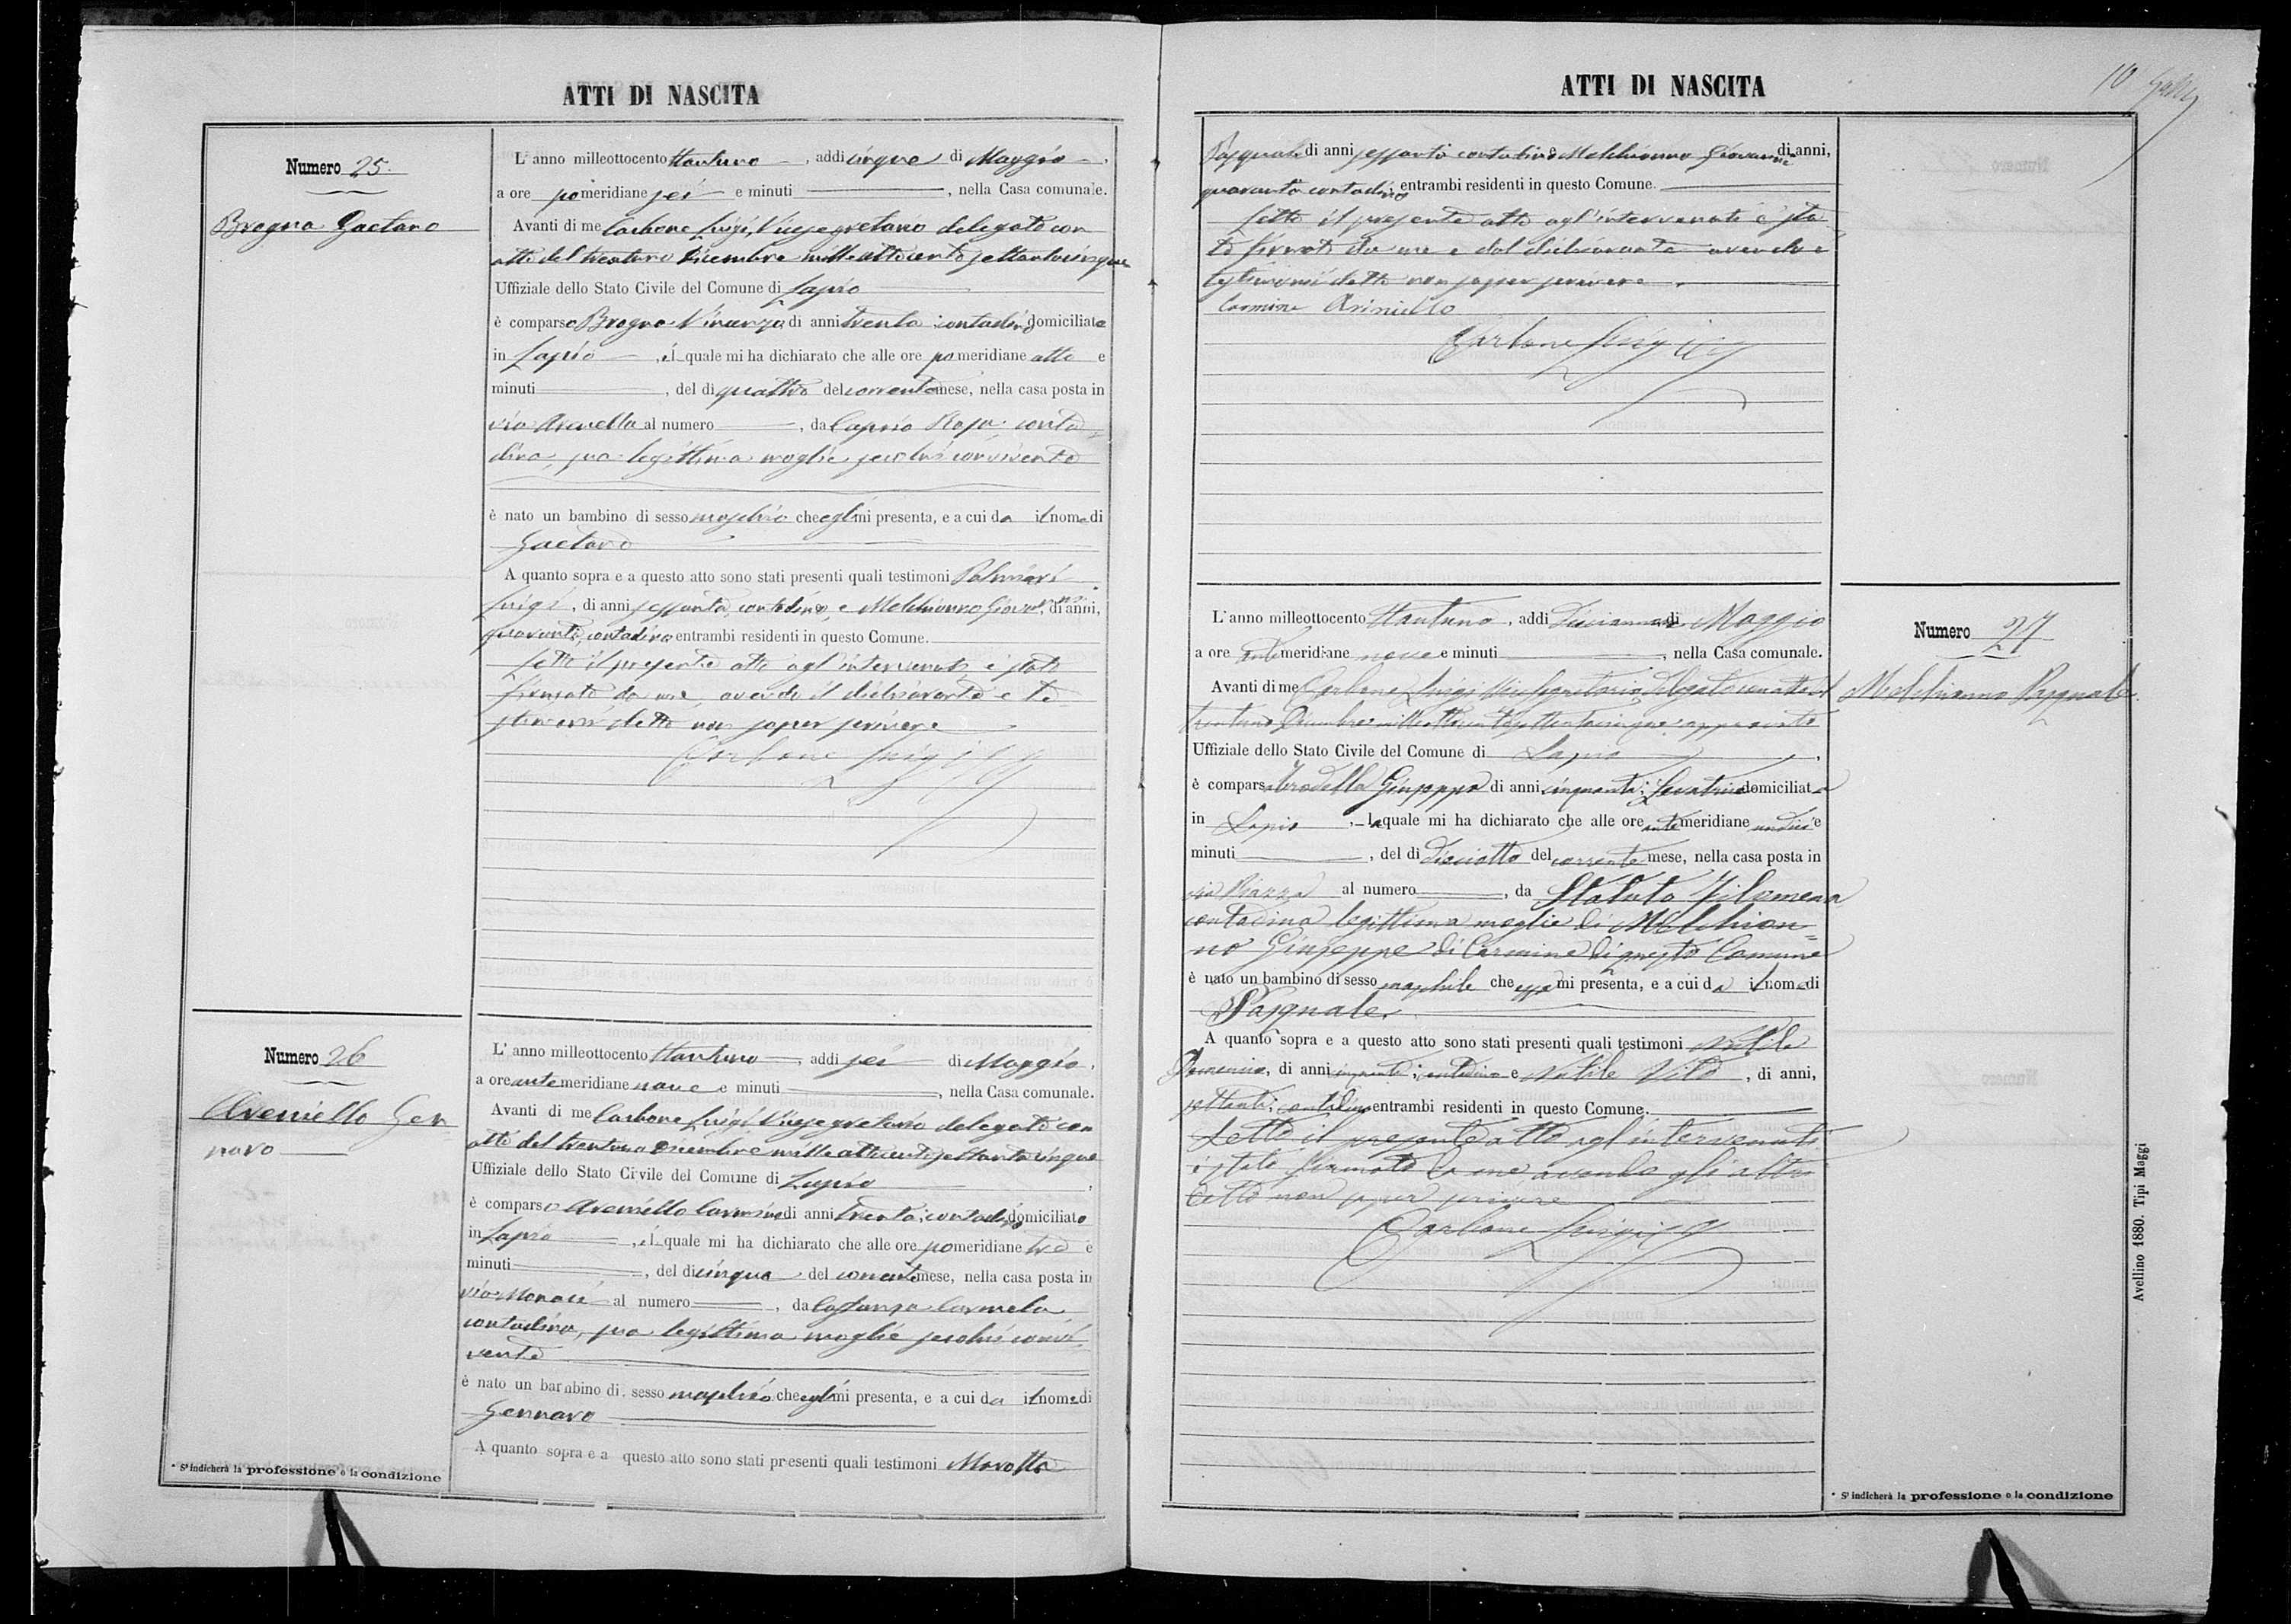 ATTI DI NASCITA
Numero 25.
Brogna Gaetano
L'anno milleottocento ttantuno, addi cinque di Maggio,
a ore pomeridiane sei e minuti , nella Casa comunale.
Avanti di me Carbone Luigi, Vicesegretario delegato con
atto del trentuno Dicembre milleottocento settantacinque
Uffiziale dello Stato Civile del Comune di Lapio
è comparso Brogna Vincenzo, di anni trenta contadino domiciliato
in Lapio, il quale mi ha dichiarato che alle ore pomeridiane otto e
minuti , del dì quattro del corrente mese, nella casa posta in
via Arenella al numero , da Caprio Rosa conta
dina, sua legittima moglie secolui convivente
è nato un bambino di sesso maschio che egli mi presenta, e a cui da il nome di
Gaetano
A quanto sopra e a questo atto sono stati presenti quali testimoni
Luigi, di anni sessanta, contadino, e Melchionno Giovanni, di anni,
quaranta, contadino entrambi residenti in questo Comune.
Letto il presente atto agl'intervenuti è stato
firmato da me, avendo il dichiarante e te
stimoni detto non saper scrivere
Carbone Luigi
Numero 26
Areniello Gen
naro
L'anno milleottocento ttantuno, addi sei di Maggio,
a ore antemeridiane nove e minuti , nella Casa comunale.
Avanti di me Carbone Luigi, Vicesegretario delegato con
atto del trentuno Dicembre milleottocentosettantacinque
Uffiziale dello Stato Civile del Comune di Lapio,
è comparso Areniello Carmine di anni trenta, contadino domiciliato
in Lapio, il quale mi ha dichiarato che alle ore pomeridiane tre e
minuti , del di cinque del corrente mese, nella casa posta in
via Monaci al numero , da Costanza Carmela
contadina, sua legittima moglie secolui convi
vente
è nato un bambino di sesso maschio che egli mi presenta, e a cui da il nome di
Gennaro
A quanto sopra e a questo atto sono stati presenti quali testimoni Marotta
* S'indicherà la professione o la condizione
ATTI DI NASCITA
10
Pasquale di anni sessanta contadino e Melchionno Giovanni di anni,
quaranta contadino entrambi residenti in questo Comune.
Letto il presente atto agl'intervenuti è sta
to firmato da me e dal dichiarante avendo e
testimoni detto non saper scrivere
Carmine Ariniello
Carbone Luigi
L'anno milleottocento ttantuno, addi Diciannove di Maggio
a ore antemeridiane nove e minuti , nella Casa comunale.
Avanti di me Carbone Luigi Vicesegretario delegato con atto del
trentuno Dicembre milleottocentosettantacinque
Uffiziale dello Stato Civile del Comune di Lapio.
è comparsa Giuseppa di anni cinquanta; Levatrice domiciliata
in Lapio, la quale mi ha dichiarato che alle ore antemeridiane undici e
minuti , del di Diciotto del corrente mese, nella casa posta in
via Piazza al numero , da Statuto Filomena
contadina legittima moglie di Melchion=
no Giuseppe di Carmine di questo Comune
è nato un bambino di sesso maschile che essa mi presenta, e a cui da il nome di
Pasquale.
A quanto sopra e a questo atto sono stati presenti quali testimoni Natile
Domenico, di anni cinquanta; contadino e Natile Vito, di anni,
settanta; contadino entrambi residenti in questo Comune.
Letto il presente atto agl'intervenuti
è stato firmato da me, avendo gli altri
detto non saper scrivere
Carbone Luigi
Numero 27
Melchionno Pasquale
Avellino 1880. Tipi Maggi
* S'indicherà la professione o la condizione